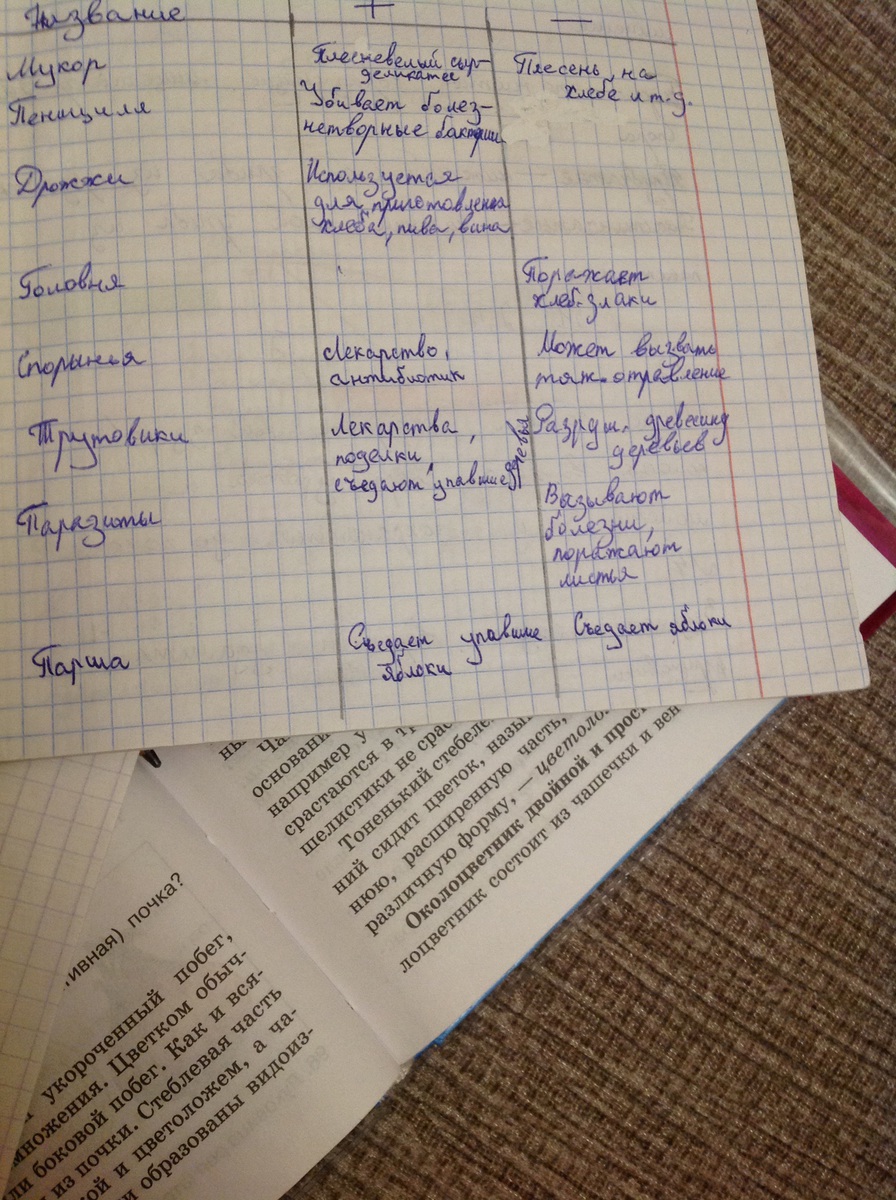 Название + —
Мукор Плесневелый сыр- Плесень на
деликатес хлебе и т.д.
Пеницилл Убивает болез-
нетворные бактерии
Дрожжи Используется
для приготовления
хлеба, пива, вина
Головня Поражает
хлеб. злаки
Спорынья Лекарство, Может вызвать
антибиотик тяж. отравление
Трутовики Лекарства, Разруш. древесину
поделки, деревьев
съедают упавшие деревья
Паразиты Вызывают
болезни,
поражают
листья
Парша Съедает упавшие Съедает яблоки
яблоки
основани
например у
срастаются в
шелистики не срас
Тоненький стебеле
ний сидит цветок, назы
нюю, расширенную часть,
различную форму, — цветоло
Околоцветник двойной и прос
лоцветник состоит из чашечки и вен
тивная) почка?
укороченный побег,
множения. Цветком обыч-
ли боковой побег. Как и вся-
из почки. Стеблевая часть
кой и цветоложем, а ча-
и образованы видоиз-